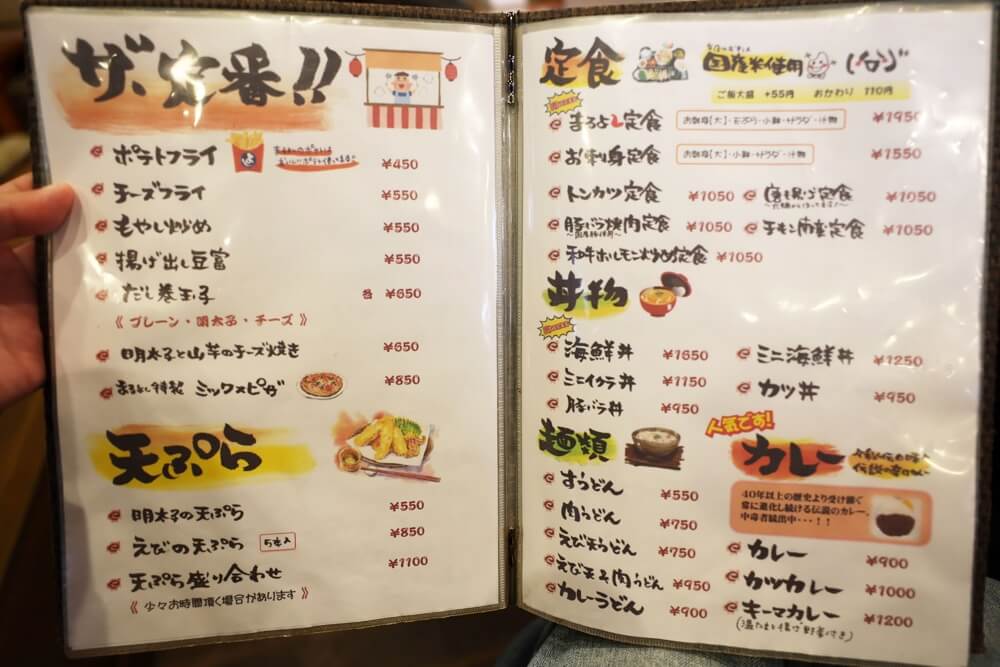 ザ、定番!!
ポテトフライ ¥450
チーズフライ ¥550
もやし炒め ¥550
揚げ出し豆富 ¥550
だし巻玉子 各 ¥650
《 プレーン・明太子・チーズ 》
明太子と山芋のチーズ焼き ¥650
まるよし特製 ミックスピザ ¥850
天ぷら
明太子の天ぷら ¥550
えびの天ぷら 5本入 ¥850
天ぷら盛り合わせ ¥1100
《 少々お時間頂く場合があります 》
定食 国産米使用
ご飯大盛 +55円 おかわり 110円
まるよし定食 お刺身【大】・天ぷら・小鉢・サラダ・汁物 ¥1950
お刺身定食 お刺身【大】・小鉢・サラダ・汁物 ¥1550
トンカツ定食 ¥1050 唐揚げ定食 ¥1050
豚バラ焼肉定食 ¥1050 チキン南蛮定食 ¥1050
和牛ホルモン炒め定食 ¥1050
丼物
海鮮丼 ¥1650 ミニ海鮮丼 ¥1250
ミニイクラ丼 ¥1150 カツ丼 ¥950
豚バラ丼 ¥950
麺類
すうどん ¥550
肉うどん ¥750
えび天うどん ¥750
えび天&肉うどん ¥950
カレーうどん ¥900
人気です!
カレー
40年以上の歴史より受け継ぐ
常に進化し続ける伝説のカレー、
中毒者続出中・・・!!
カレー ¥900
カツカレー ¥1000
キーマカレー ¥1200
(温たまと揚げ野菜付き)